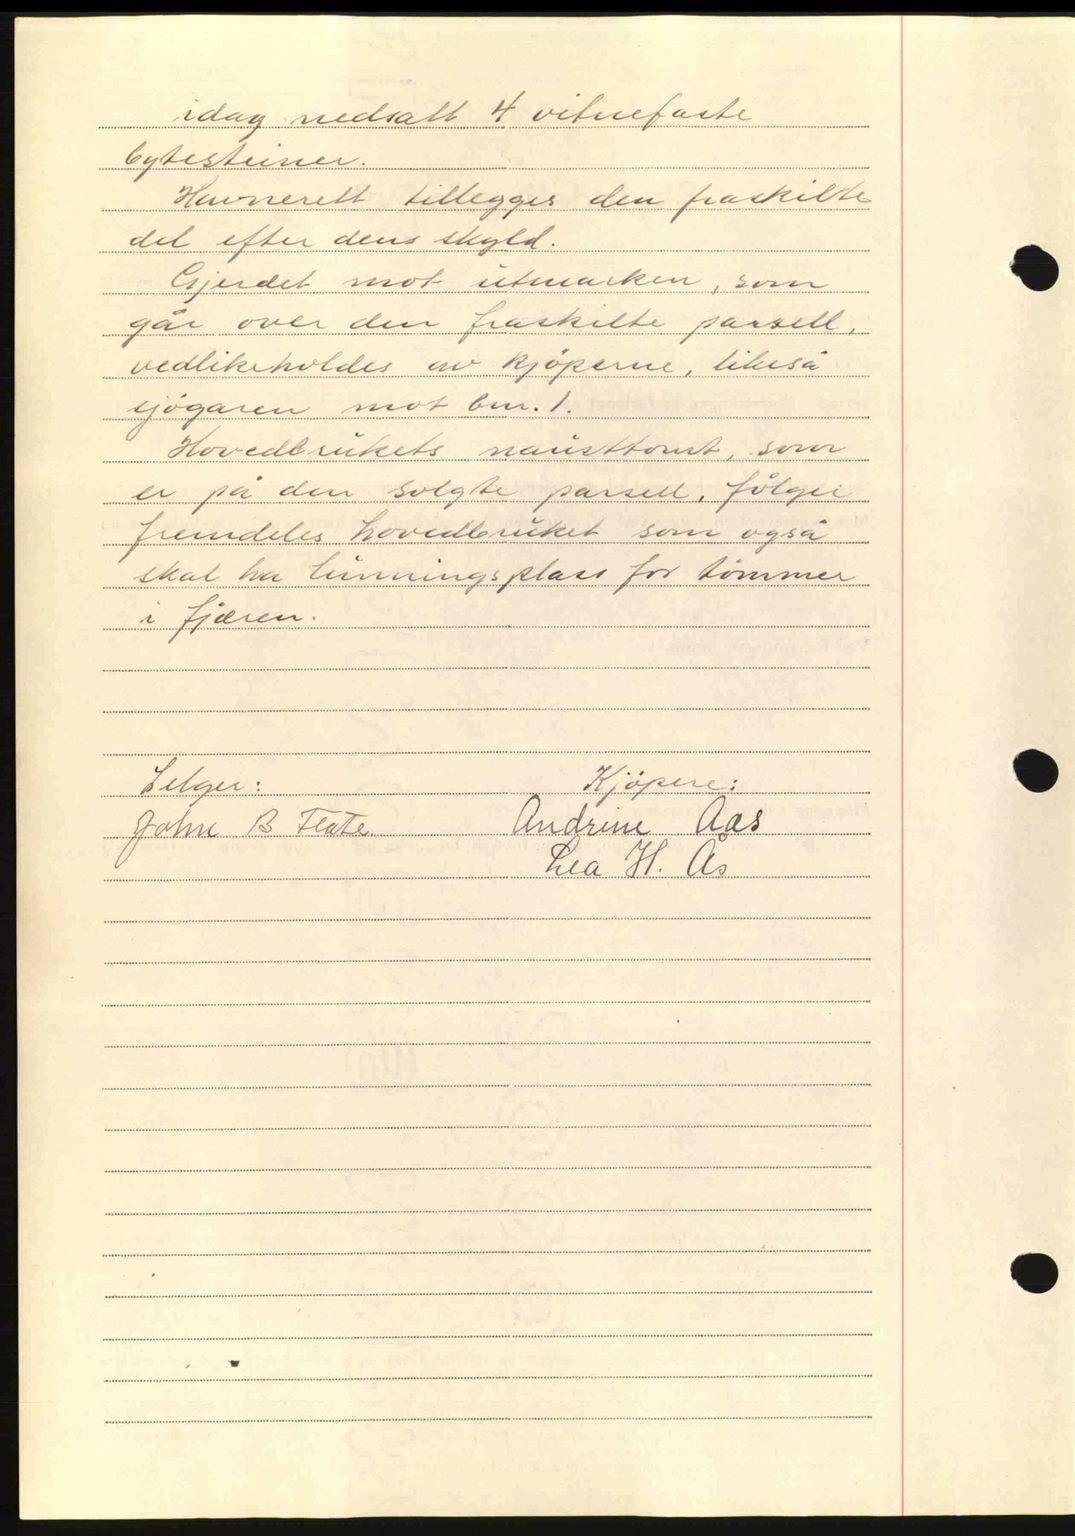 idag nedsatt 4 vitnefaste
bytesteiner.
Havnerett tillegges den fraskilte
del efter dens skyld.
Gjerdet mot utmarken, som
går over den fraskilte parsell,
vedlikeholdes av kjöperne, likeså
sjögaren mot bnr. 1.
Hovedbrukets nausttomt, som
er på den solgte parsell, fölger
fremdeles hovedbruket som også
skal ha lunningsplass for tömmer
i fjæren.
Selger:
Kjöpere:
John B Flate
Andrine Aas
Lea H. Ås